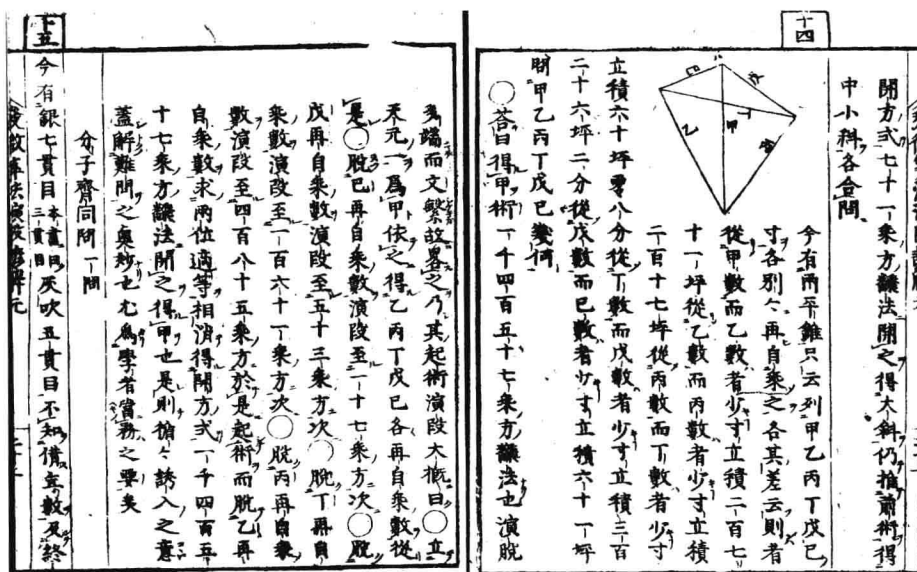 十四
開方式七十一乗方飜法開之得大斜仍推前術得
中小斜各合問
今有兩平錐只云列甲乙丙丁戊己
寸各別々再自乗之各其差云則者
從甲數而乙數者少寸立積二百七
十一坪從乙數而丙數者少寸立積
二百十七坪從丙數而丁數者少寸
立積六十坪零八分從丁數而戊數者少寸立積三百
二十六坪二分從戊數而己數者少寸立積六十一坪
問甲乙丙丁戊己幾何
○荅曰得甲術一千四百五十七乗方飜法也演脱
多端而文繁故畧之乃其起術演段大槪曰○立
天元一爲甲依之得乙丙丁戊己各再自乗數從
是○脱己再自乗數演段至一十七乗方次○脱
戊再自乗數演段至五十三乗方次○脱丁再自
乗數演段至一百六十一乗方次○脱丙再自乗
數演段至四百八十五乗方於是起術而脱乙再
自乗數求兩位適等相消得開方式一千四百五
十七乗方飜法開之得甲也是則偹々誘入之意
蓋解難問之奥妙也尤爲學者當務之要矣
分子齊同問一問
下五
今有銀七貫目本書曰三貫目灰吹五貫目不知借年數及終
甲
乙
丙
丁
戊